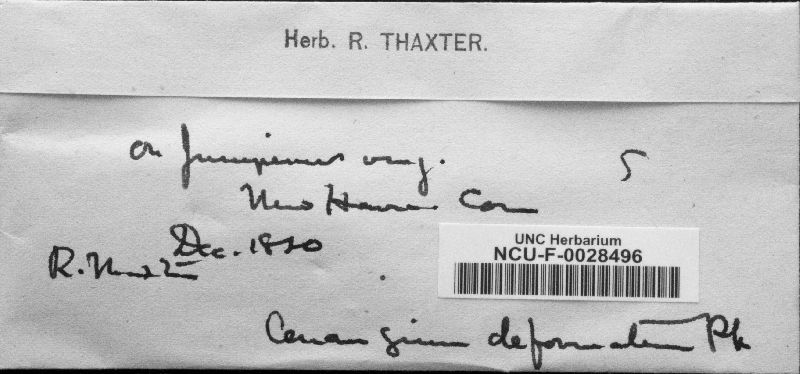 Herb. R. THAXTER.
on Juniperus virg. 5
New Haven Conn
Dec. 1890
R. Thaxter
UNC Herbarium
NCU-F-0028496
Cenangium deformatum Pk